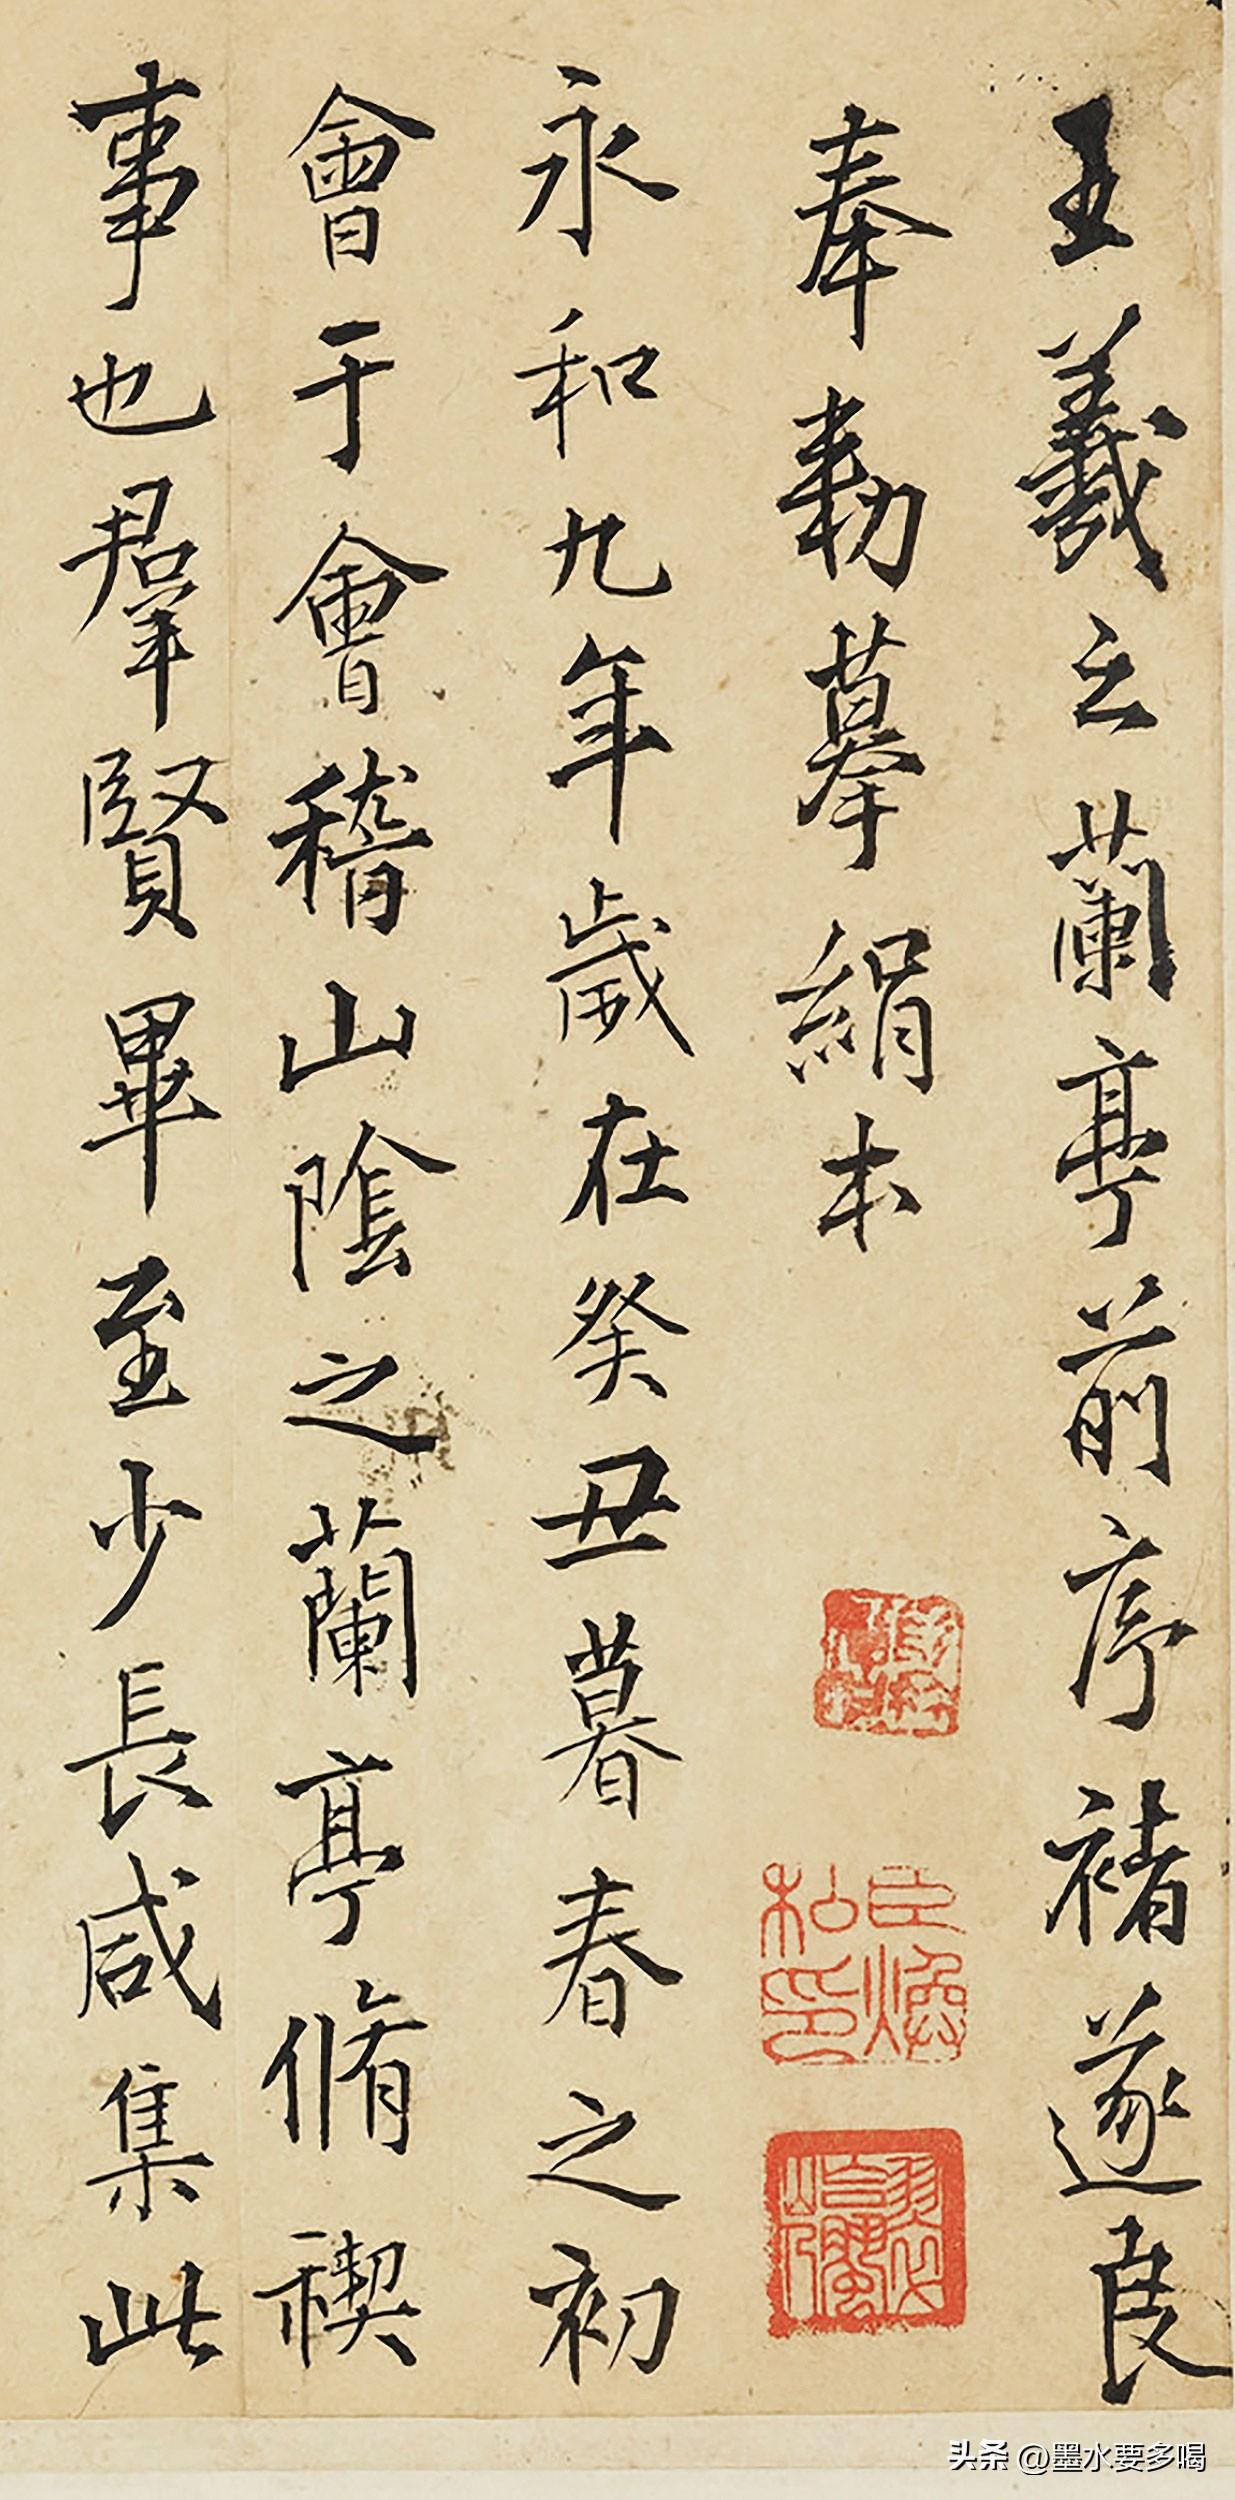 王羲之蘭亭前序褚遂良
奉勅摹絹本
永和九年歲在癸丑暮春之初
會于會稽山陰之蘭亭脩禊
事也羣賢畢至少長咸集此
臣煥私印
头条 @墨水要多喝